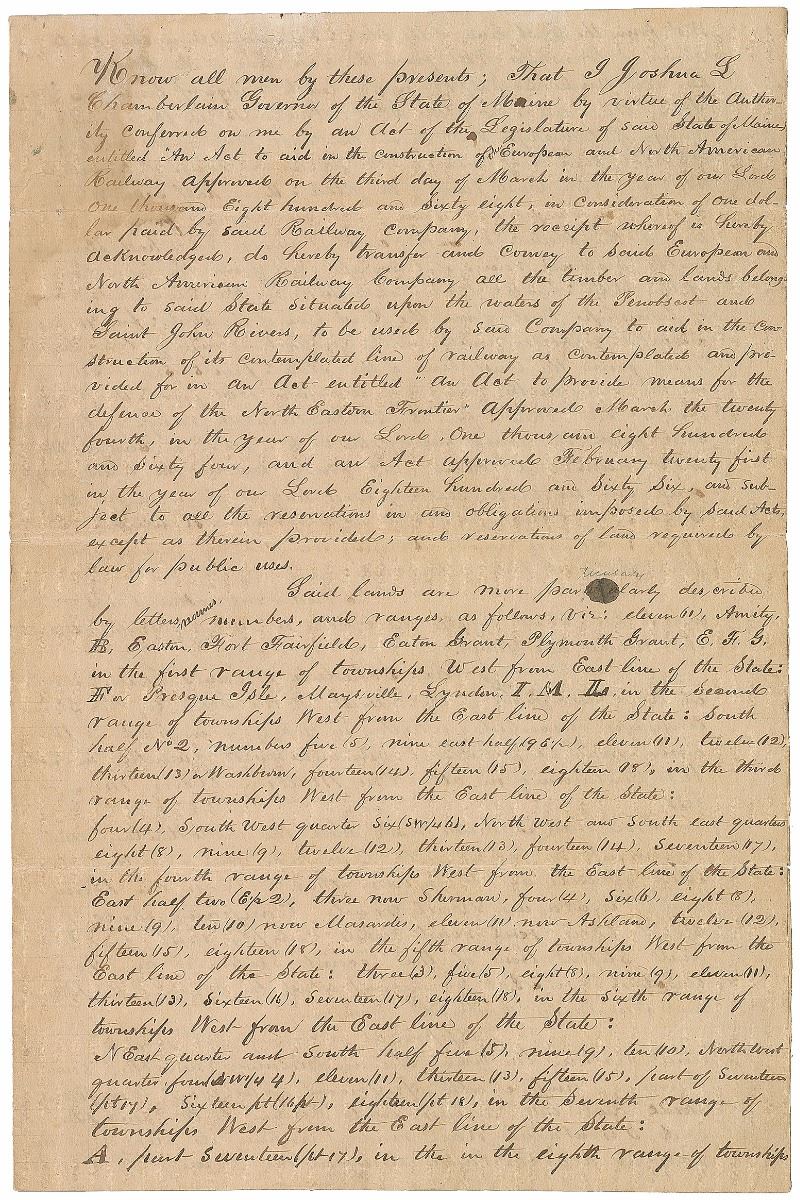 Know all men by these presents; That I Joshua L
Chamberlain Governor of the State of Maine by virtue of the Author-
ity conferred on me by an Act of the Legislature of said State of Maine,
entitled "An Act to aid in the construction of European and North American
Railway approved on the third day of March in the year of our Lord
One thousand Eight hundred and Sixty eight, in consideration of one dol-
lar paid by said Railway Company, the receipt whereof is hereby
acknowledged, do hereby transfer and convey to said European and
North American Railway Company all the timber and lands belong-
ing to said State situated upon the waters of the Penobscot and
Saint John Rivers, to be used by said Company to aid in the con-
struction of its contemplated line of railway as contemplated and pro-
vided for in an Act entitled "an Act to provide means for the
defense of the North Eastern Frontier" approved March the twenty
fourth, in the year of our Lord, One thousand eight hundred
and sixty four, and an Act approved February twenty first
in the year of our Lord Eighteen hundred and Sixty Six, and sub-
ject to all the reservations in and obligations imposed by said Acts,
except as therein provided; and reservations of land required by
law for public uses.
Said lands are more particularly described
by letters, names, numbers, and ranges, as follows, viz: eleven (11), Amity,
B, Easton, Fort Fairfield, Eaton Grant, Plymouth Grant, E. F. G.
in the first range of townships West from East line of the State:
F or Presque Isle, Maysville, Lyndon, I. M. L. in the second
range of townships West from the East line of the State: South
half No 2, numbers five (5), nine east half (9 E½), eleven (11), twelve (12),
thirteen (13) or Washburn, fourteen (14), fifteen (15), eighteen (18), in the third
range of townships West from the East line of the State:
four (4), South West quarter Six (SW¼ 6), North West and South east quarters
eight (8), nine (9), twelve (12), thirteen (13), fourteen (14), Seventeen (17),
in the fourth range of townships West from the East line of the State:
East half two (E½ 2), three now Sherman, four (4), Six (6), eight (8),
nine (9), ten (10) now Masardis, eleven (11) now Ashland, twelve (12),
fifteen (15), eighteen (18), in the fifth range of townships West from the
East line of the State: three (3), five (5), eight (8), nine (9), eleven (11),
thirteen (13), Sixteen (16), Seventeen (17), eighteen (18), in the Sixth range of
townships West from the East line of the State:
N East quarter and South half five (5), nine (9), ten (10), North West
quarter four (NW¼ 4), eleven (11), thirteen (13), fifteen (15), part of Seventeen
(pt 17), Sixteen pt (16 pt), eighteen (pt 18), in the Seventh range of
townships West from the East line of the State:
A, part Seventeen (pt 17), in the in the eighth range of townships